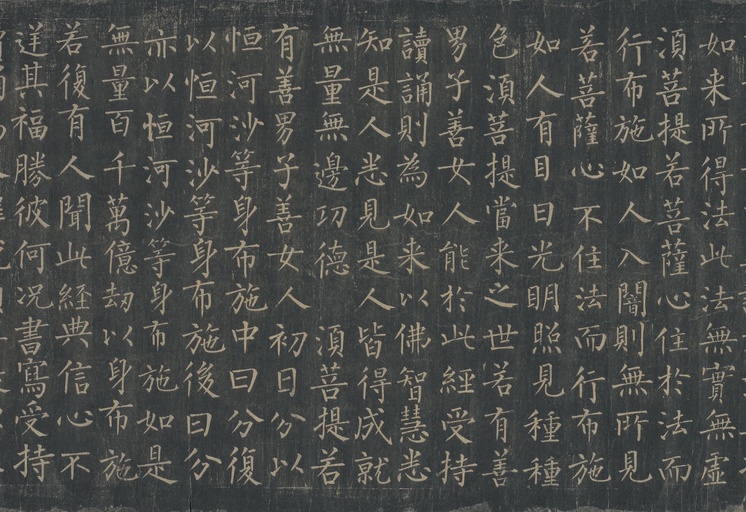 如来所得法此法無實無虛
湏菩提若菩薩心住於法而
行布施如人入闇則無所見
若菩薩心不住法而行布施
如人有目日光明照見種種
色湏菩提當来之世若有善
男子善女人能於此經受持
讀誦則為如来以佛智慧悉
知是人悉見是人皆得成就
無量無邊功德 湏菩提若
有善男子善女人初日分以
恒河沙等身布施中日分復
以恒河沙等身布施後日分
亦以恒河沙等身布施如是
無量百千萬億劫以身布施
若復有人聞此經典信心不
逆其福勝彼何况書寫受持